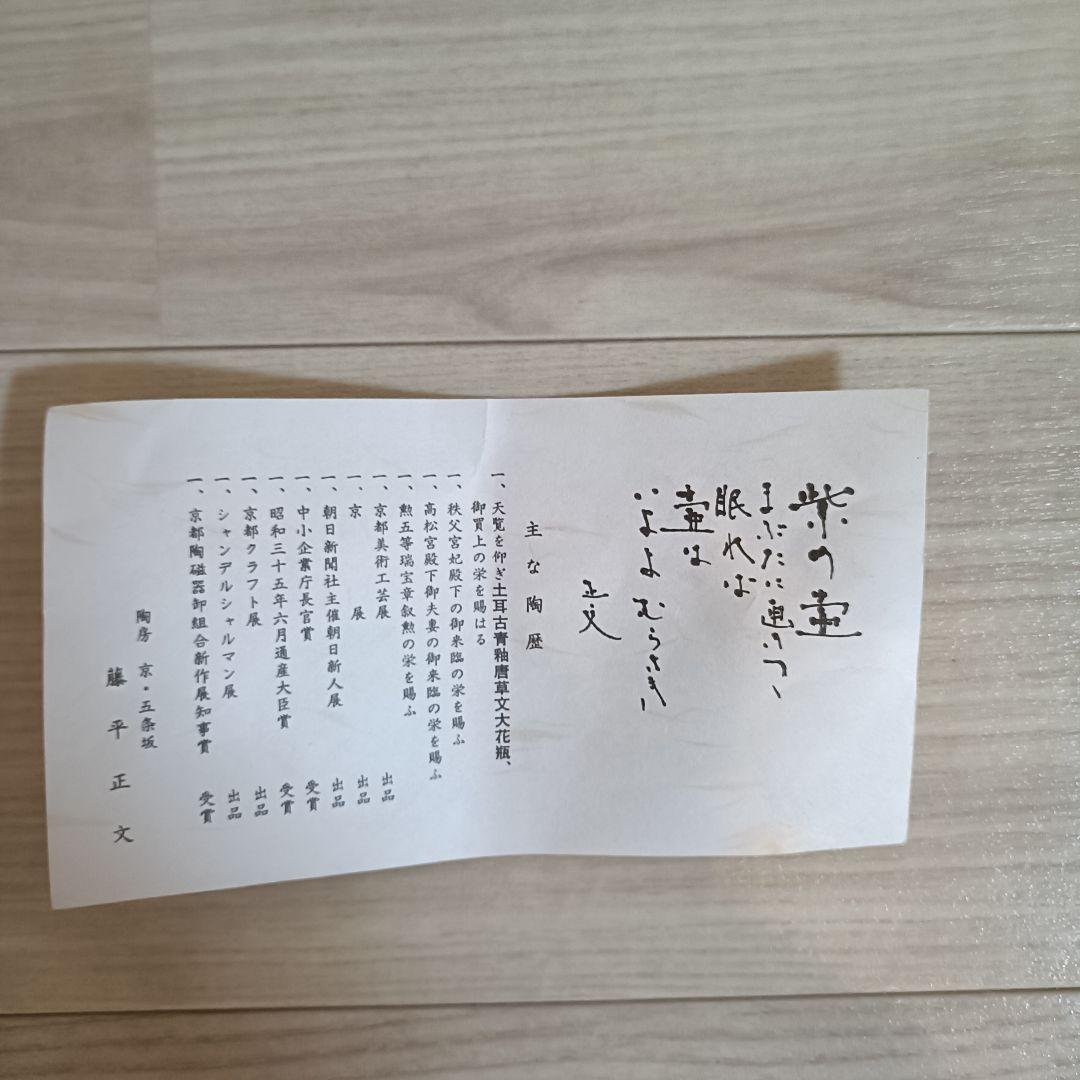 紫の壷
まぶたに通ひつゝ
眠れば
壷は
いよよむらさきに
正文
主な陶歴
一、天覧を仰ぎ土耳古青釉唐草文大花瓶、
御買上の栄を賜はる
一、秩父宮妃殿下の御来臨の栄を賜ふ
一、高松宮殿下御夫妻の御来臨の栄を賜ふ
一、勲五等瑞宝章叙勲の栄を賜ふ
一、京都美術工芸展 出品
一、京展 出品
一、朝日新聞社主催朝日新人展 出品
一、中小企業庁長官賞 受賞
一、昭和三十五年六月通産大臣賞 受賞
一、京都クラフト展 出品
一、シャンデルシャルマン展 出品
一、京都陶磁器卸組合新作展知事賞 受賞
陶房 京・五条坂
藤平正文